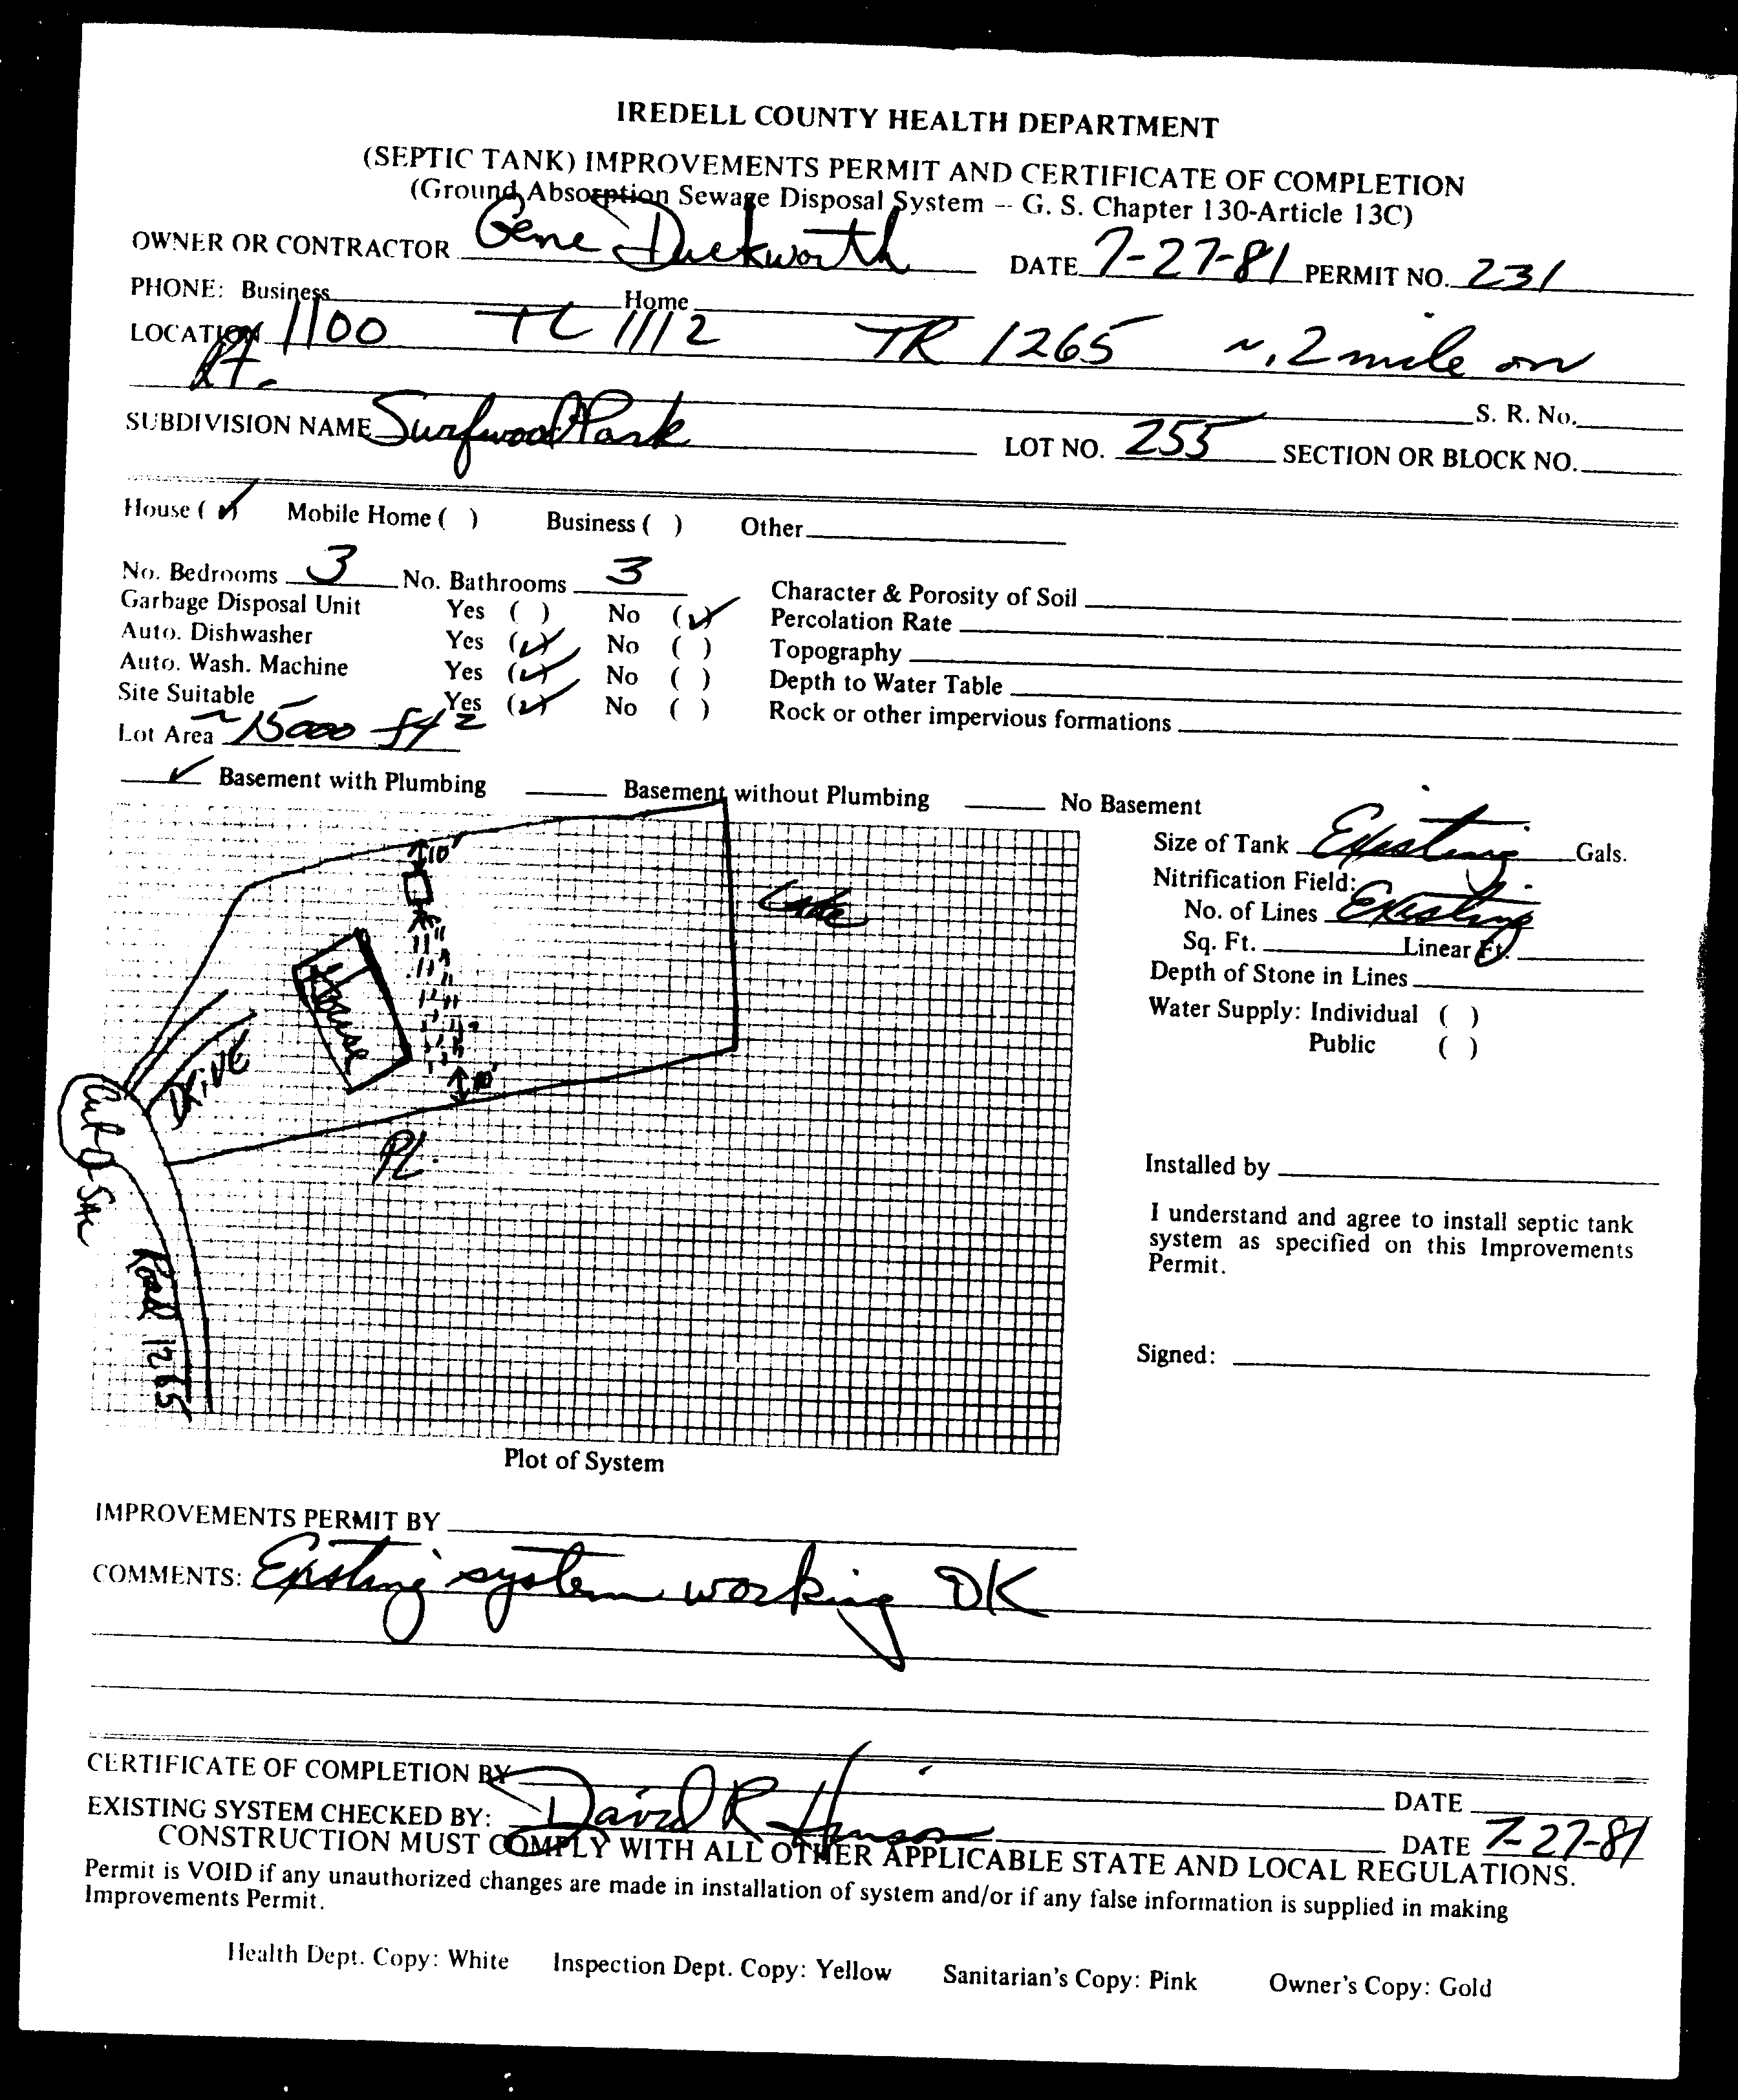 IREDELL COUNTY HEALTH DEPARTMENT
(SEPTIC TANK) IMPROVEMENTS PERMIT AND CERTIFICATE OF COMPLETION
(Ground Absorption Sewage Disposal System -- G. S. Chapter 130-Article 13C)
OWNER OR CONTRACTOR Gene Duckworth DATE 7-27-81 PERMIT NO. 231
PHONE: Business Home
LOCATION 1100 TL 1112 TR 1265 ~.2 mile on
Rt.
S. R. No.
SUBDIVISION NAME Surfwood Park LOT NO. 255 SECTION OR BLOCK NO.
House (✓) Mobile Home ( ) Business ( ) Other
No. Bedrooms 3 No. Bathrooms 3 Character & Porosity of Soil
Garbage Disposal Unit Yes ( ) No (✓) Percolation Rate
Auto. Dishwasher Yes (✓) No ( ) Topography
Auto. Wash. Machine Yes (✓) No ( ) Depth to Water Table
Site Suitable Yes (✓) No ( ) Rock or other impervious formations
Lot Area ~15000 ft2
✓ Basement with Plumbing Basement without Plumbing No Basement
Size of Tank Existing Gals.
Nitrification Field:
No. of Lines Existing
Sq. Ft. Linear Ft.
Depth of Stone in Lines
Water Supply: Individual ( )
Public ( )
10'
Lake
House
Drive
10'
PL
Cul D Sac
Road 1265
Installed by
I understand and agree to install septic tank
system as specified on this Improvements
Permit.
Signed:
Plot of System
IMPROVEMENTS PERMIT BY
COMMENTS: Existing system working OK
CERTIFICATE OF COMPLETION BY DATE
EXISTING SYSTEM CHECKED BY: David R Hinson DATE 7-27-81
CONSTRUCTION MUST COMPLY WITH ALL OTHER APPLICABLE STATE AND LOCAL REGULATIONS.
Permit is VOID if any unauthorized changes are made in installation of system and/or if any false information is supplied in making
Improvements Permit.
Health Dept. Copy: White Inspection Dept. Copy: Yellow Sanitarian's Copy: Pink Owner's Copy: Gold